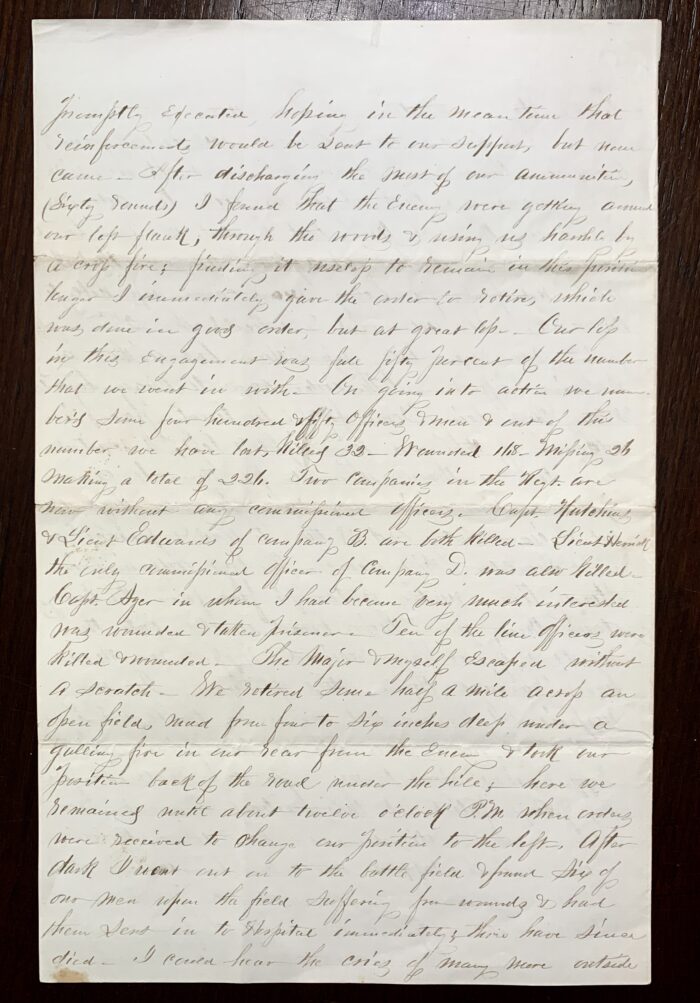 promptly executed, hoping in the mean time that
reinforcements would be sent to our support, but none
came - After discharging the most of our ammunition,
(Sixty rounds) I found that the Enemy were getting around
our left flank, through the woods & using us harshly by
a cross fire; finding it useless to remain in this position
longer I immediately gave the order to retire, which
was done in good order, but at great loss - Our loss
in this engagement was full fifty per cent of the number
that we went in with - On going into action we num-
berd some four hundred & fifty Officers & men & out of this
number we have lost, Killed 32 - Wounded 168 - Missing 26
making a total of 226. Two companies in the Regt are
now without any commissioned Officers. Capt. Hutchins
& Lieut Edwards of company B. are both killed - Lieut
the only commissioned officer of Company D. was also killed -
Capt. Ayer in whom I had become very much interested
was wounded & taken prisoner - Ten of the line officers were
killed & wounded - The Major & myself escaped without
a scratch - We retired some half a mile across an
open field, mud from four to six inches deep under a
galling fire in our rear from the Enemy & took our
position back of the road under the hill; here we
remained until about twelve o'clock P.M. when orders
were received to change our position to the left. After
dark I went out on to the battle field & found Six of
our men upon the field suffering from wounds & had
them sent in to Hospital immediately; three have since
died - I could hear the cries of many more outside